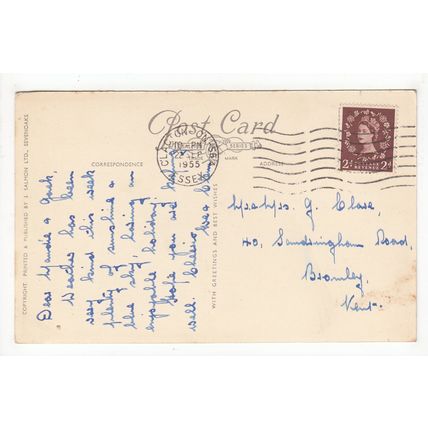 Post Card
CORRESPONDENCE
ADDRESS
MARK
CLACTON-ON-SEA
PM
SEP
1955
ESSEX
REVENUE
2D 2D
Dear Auntie & Jack,
Weather has been
very kind this week
plenty of sunshine &
blue sky, having an
enjoyable holiday.
Hope you
well. Cheerio,
Mr & Mrs. J. Close,
40, Sandringham Road,
Bromley,
Kent.
COPYRIGHT. PRINTED & PUBLISHED BY J. SALMON LTD., SEVENOAKS
WITH GREETINGS AND BEST WISHES